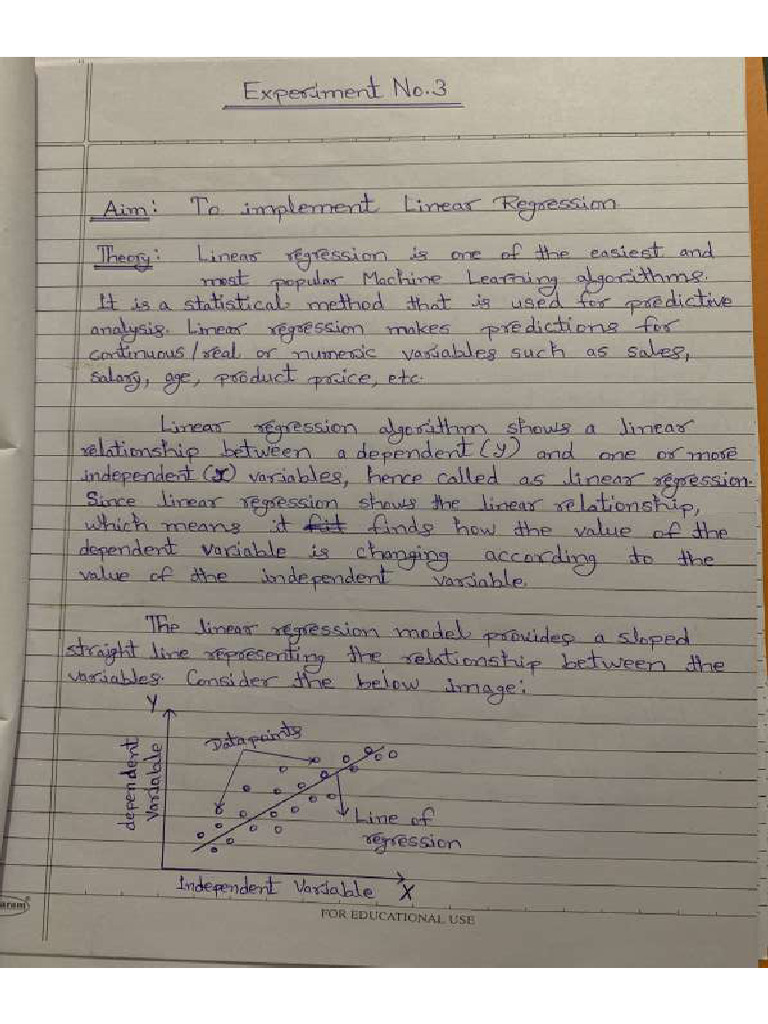 Experiment No.3
Aim: To implement Linear Regression.
Theory: Linear regression is one of the easiest and
most popular Machine Learning algorithms.
It is a statistical method that is used for predictive
analysis. Linear regression makes predictions for
continuous/real or numeric variables such as sales,
salary, age, product price, etc.
Linear regression algorithm shows a linear
relationship between a dependent (y) and one or more
independent (x) variables, hence called as linear regression.
Since linear regression shows the linear relationship,
which means it fit finds how the value of the
dependent variable is changing according to the
value of the independent variable.
The linear regression model provides a sloped
straight line representing the relationship between the
variables. Consider the below image:
Y
Datapoints
dependent
Variable
Line of
regression
Independent Variable X
FOR EDUCATIONAL USE